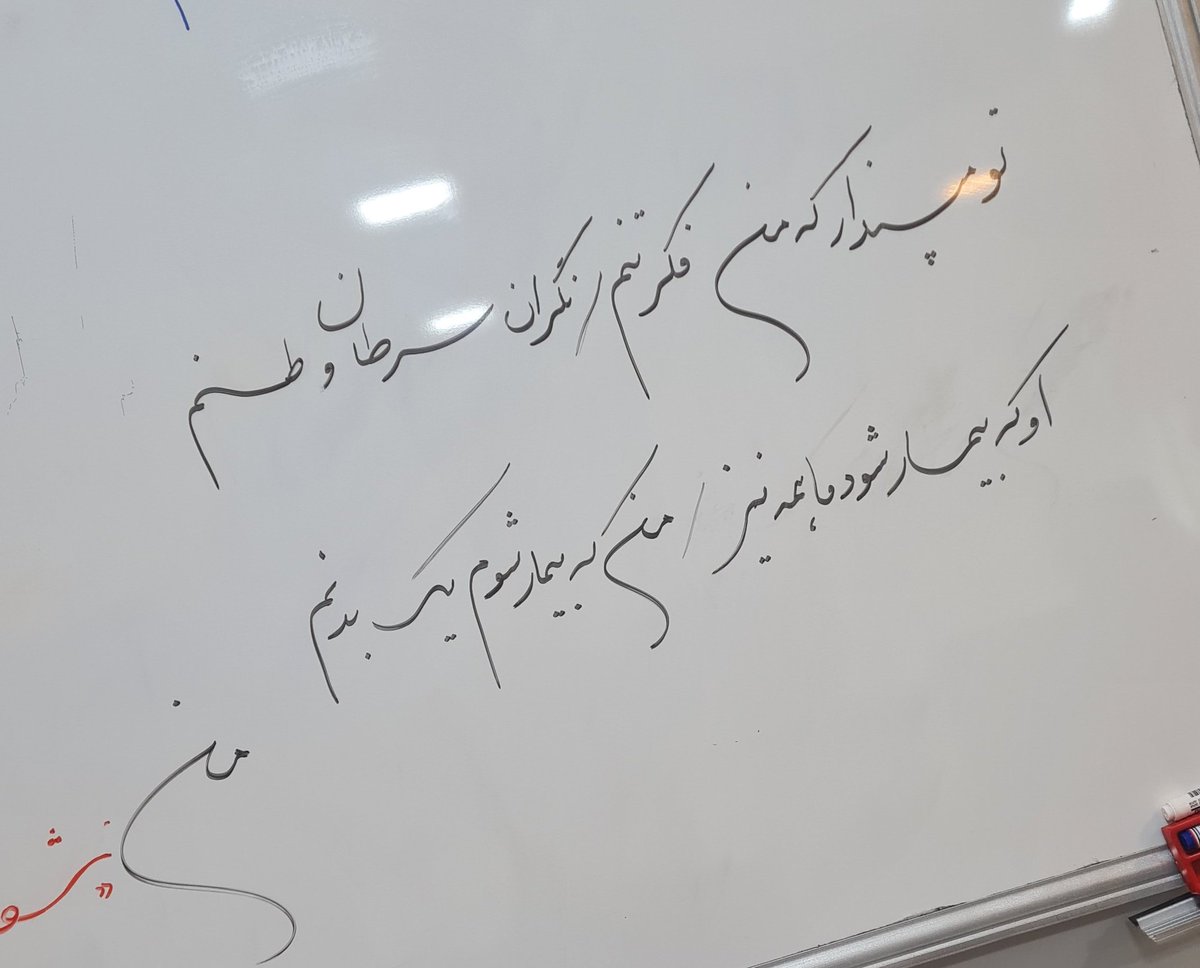 تو مپندار که من فکر تنم / نگران سرطان وطنم
او که بیمار شود ما همه نیز / من که بیمار شوم یک بدنم
من